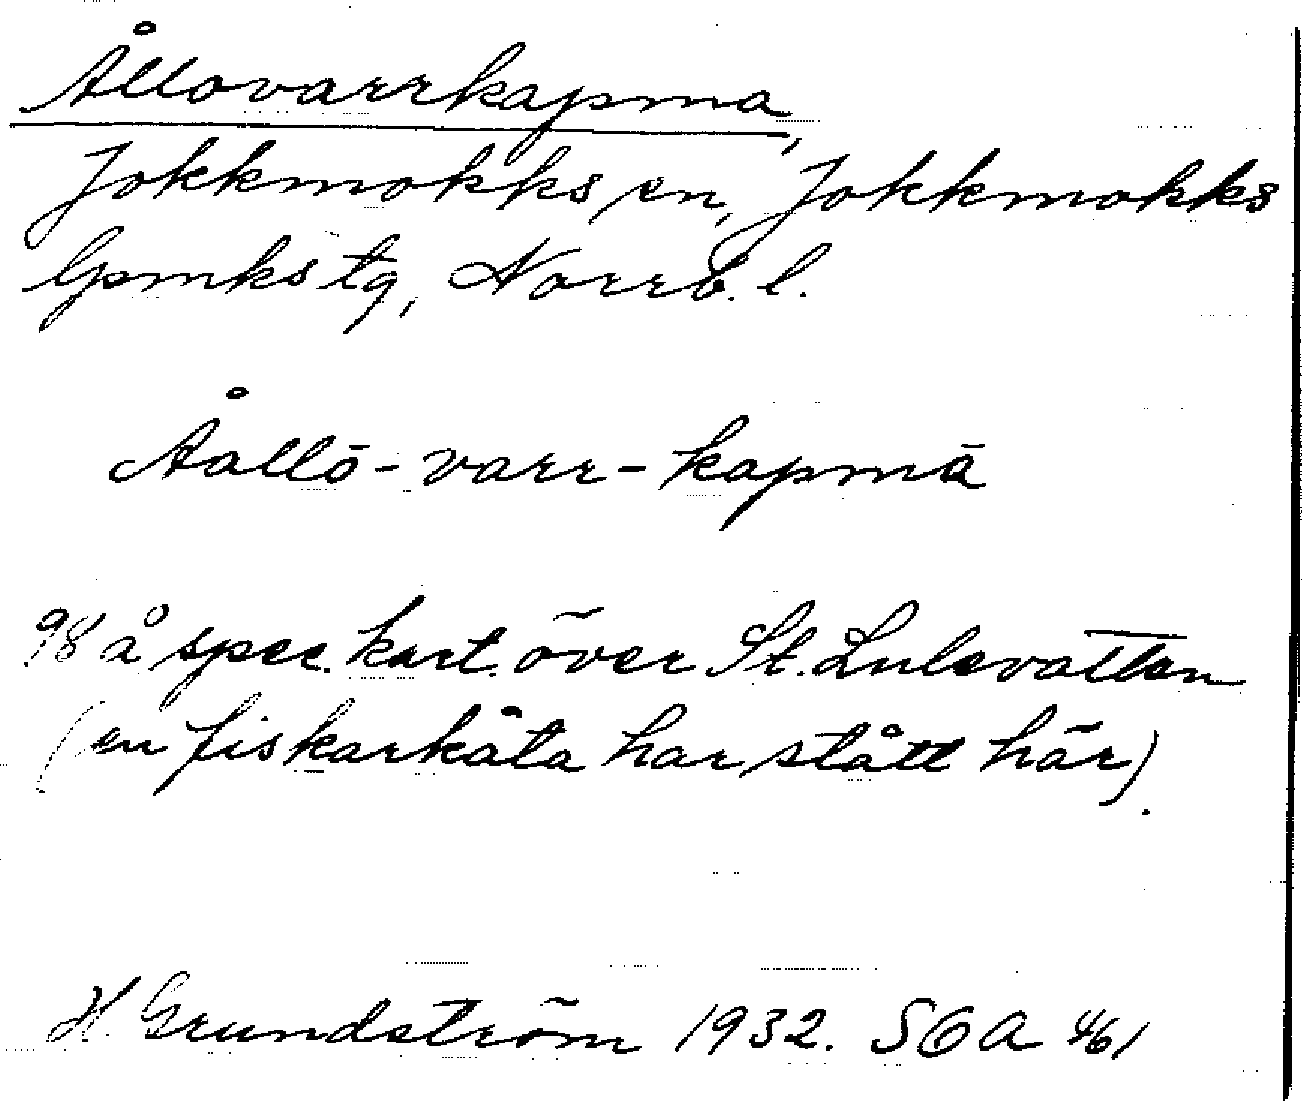 Ållovarrkapma,
Jokkmokks sn, Jokkmokks
lpmks tg, Norrb. l.
Åallō-varr-kapmā
98 å spec. kart. över St. Lulevatten
(en fiskarkåta har stått här).
H. Grundström 1932. SOA 461